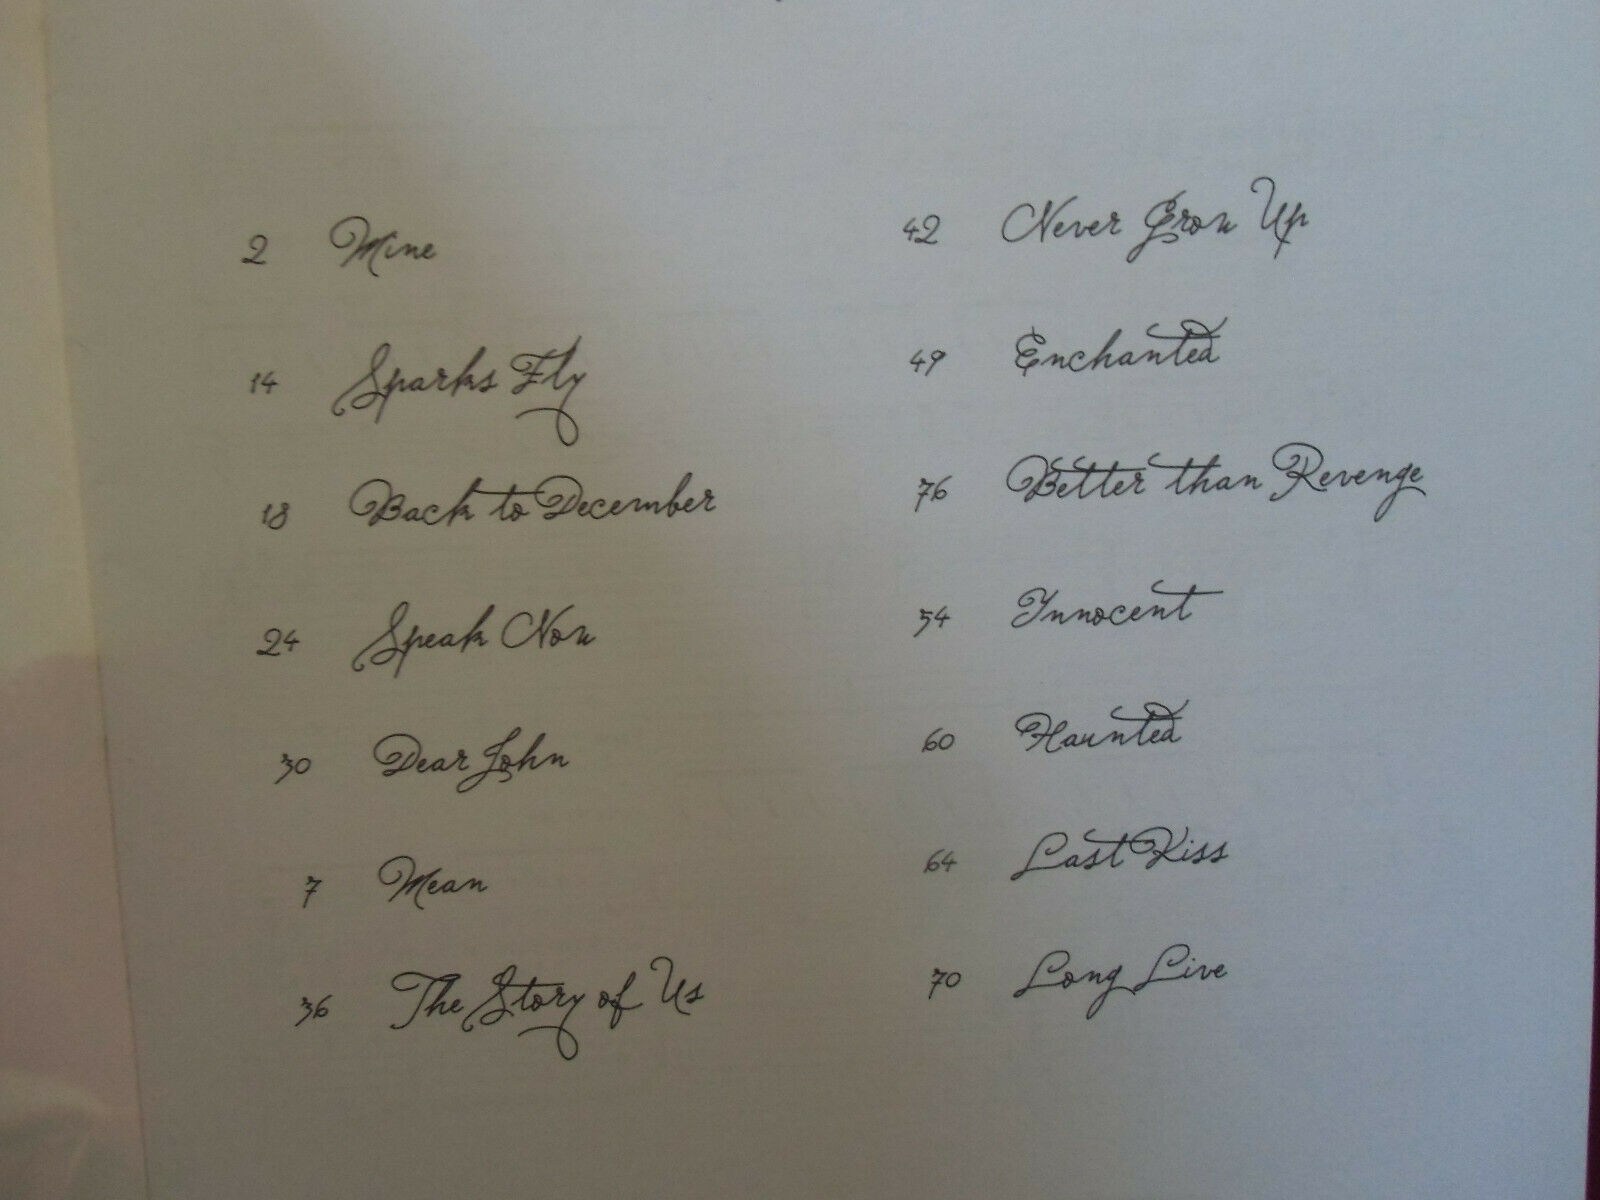 2 Mine
14 Sparks Fly
18 Back to December
24 Speak Now
30 Dear John
7 Mean
36 The Story of Us
42 Never Grow Up
49 Enchanted
76 Better than Revenge
54 Innocent
60 Haunted
64 Last Kiss
70 Long Live